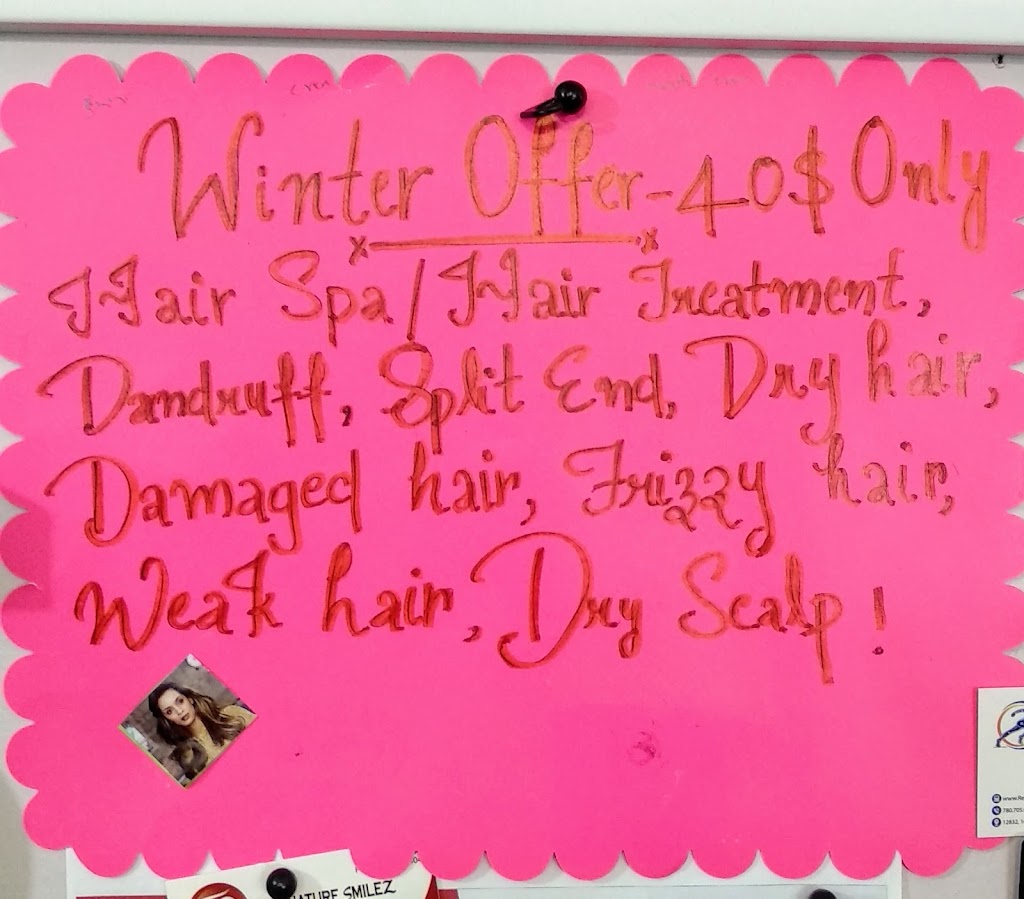 Winter Offer-40$ Only
Hair Spa/Hair Treatment,
Dandruff, Split End, Dry hair,
Damaged hair, Frizzy hair,
Weak hair, Dry Scalp!
NATURE SMILEZ